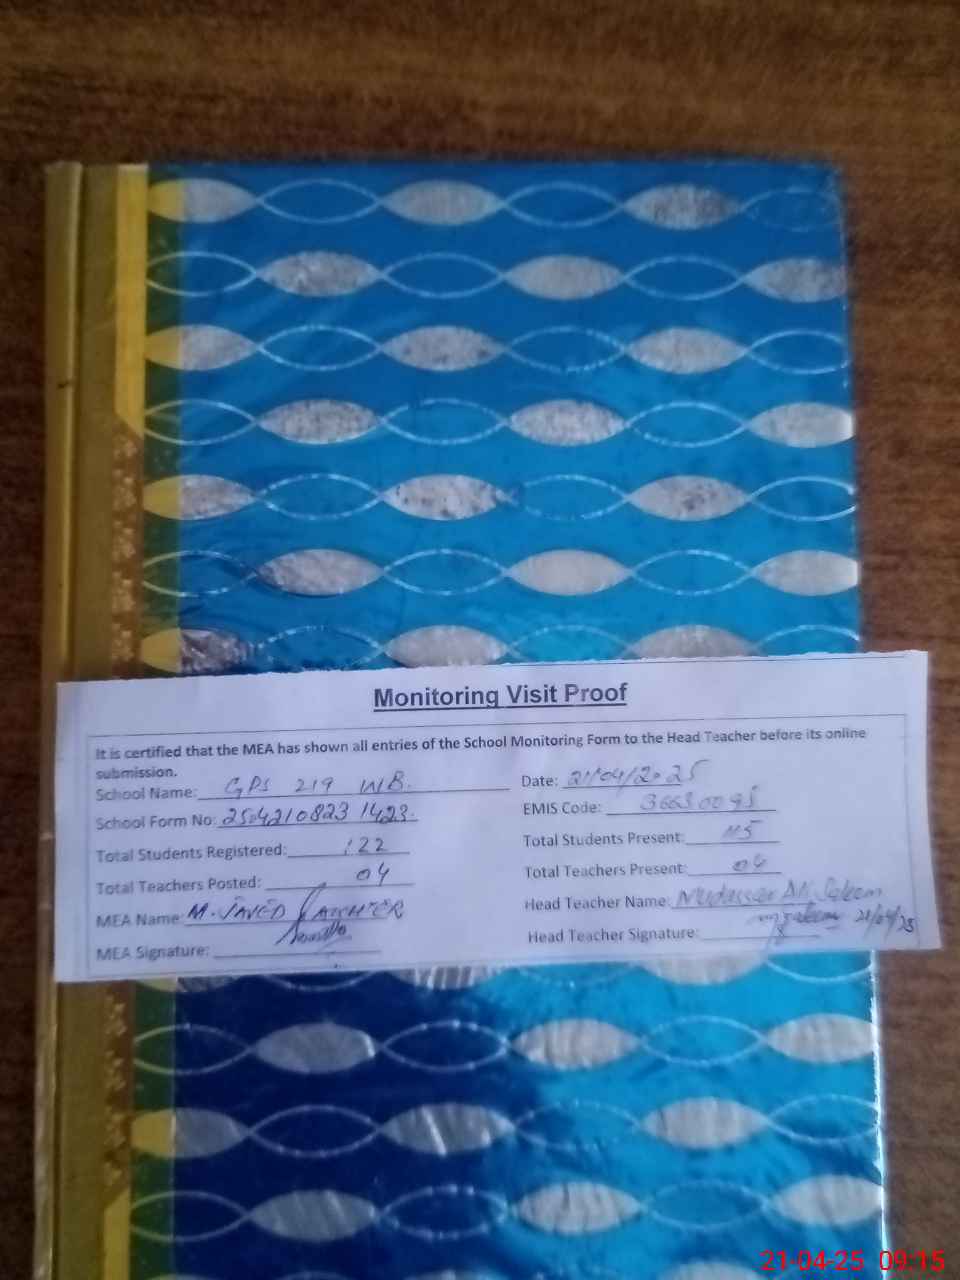 Monitoring Visit Proof
It is certified that the MEA has shown all entries of the School Monitoring Form to the Head Teacher before its online
submission.
School Name: GPS 219 WB. Date: 21/04/2025
School Form No: 2504210823 1423. EMIS Code: 36630095
Total Students Registered: 122 Total Students Present: 115
Total Teachers Posted: 04 Total Teachers Present: 04
MEA Name: M. JAVED Head Teacher Name: Mudasser Ali Saleem
MEA Signature: Head Teacher Signature: 21/04/25
21-04-25 09:15